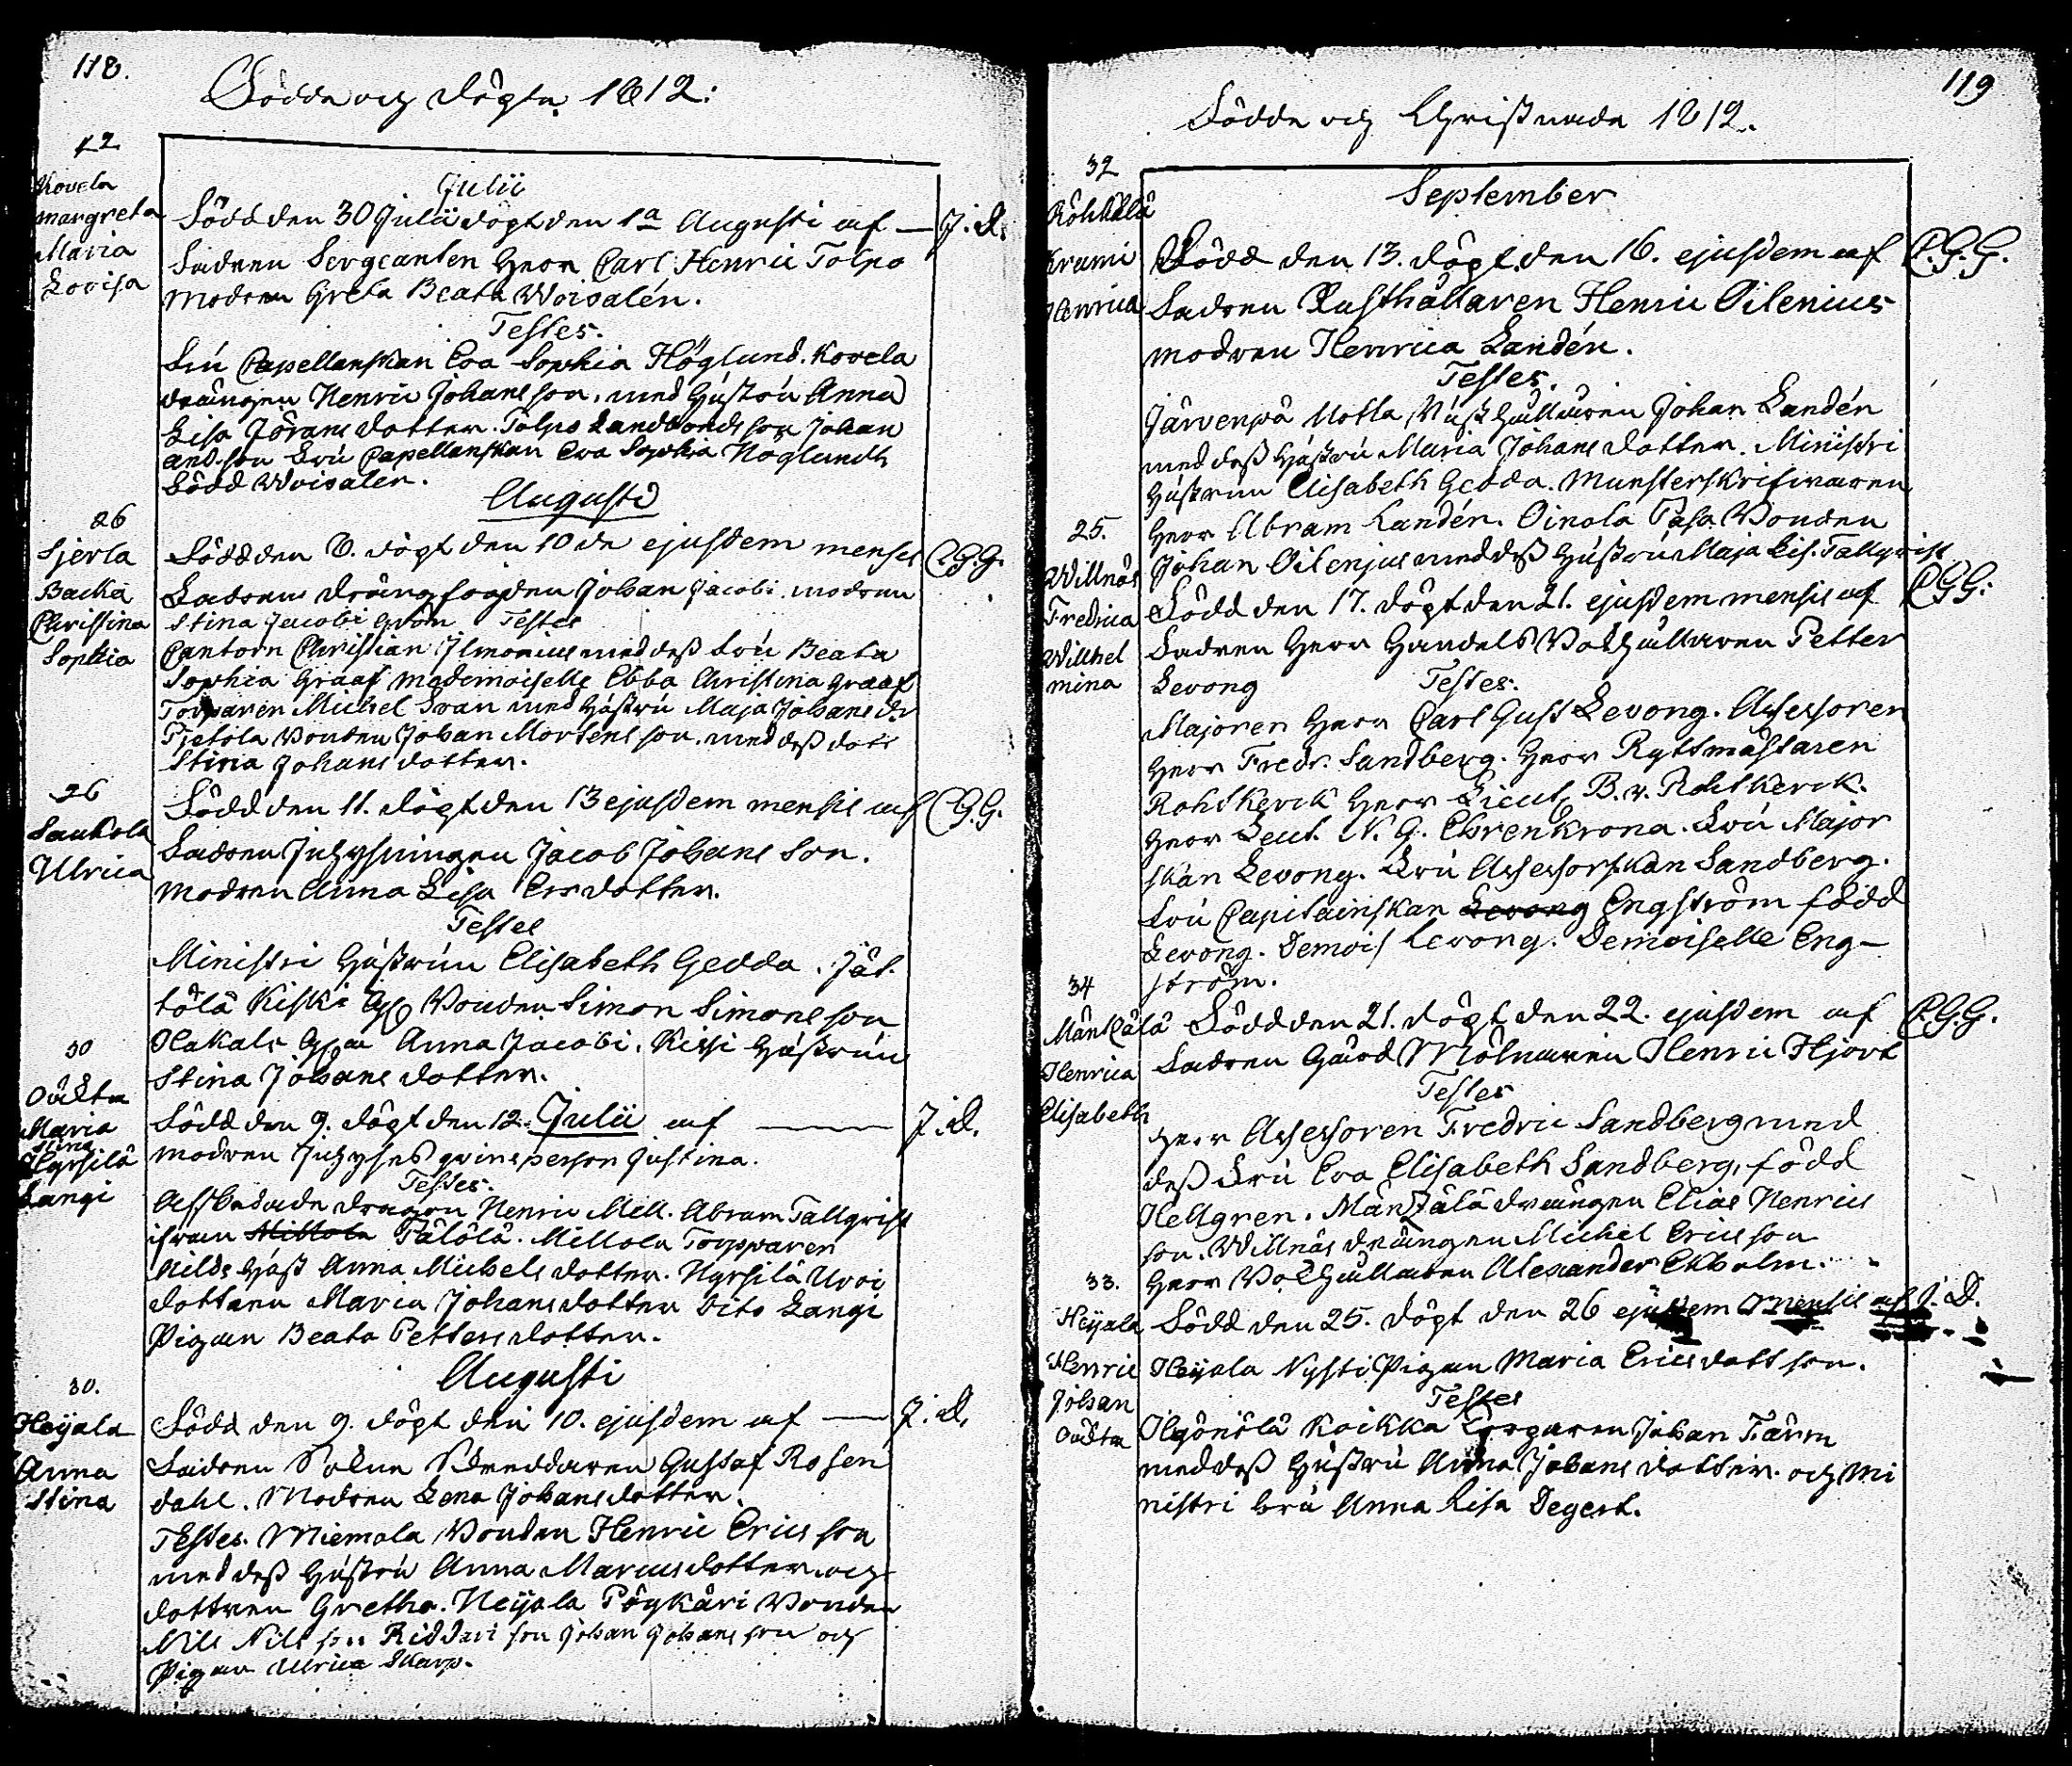 118.
Födde och Döpte 1812:
42
Kovela
margreta
Maria
Lovisa
Julii
Född den 30 Julii döpt den 1a Augusti af — J. D.
Fadren Sergeanten Herr Carl Henric Tolpo
Modren Greta Beata Woivalén.
Testes.
Fru Capellanskan Eva Sophia Höglund. Kovela
drängen Henric Johansson, med Hustru Anna
Lisa Jörans dotter. Tolpo Landbonds son Johan
And.son Fru Capellanskan Eva Sophia Höglundh
Född Woivalen.
Augusti
26
Sjerla
Backa
Christina
Sophia
Född den 6. döpt den 10 de ejusdem menses C.G.G.
Fadren drängfogden Johan Jacobi modren
Stina Jacobi Testes
Cantorn Christian Ilmonius med dess Fru Beata
Sophia Graaf Mademoiselle Ebba Christina Graaf
Torparen Michel Svan med Hustru Maja Johans dr
Pjetola Bonden Johan Mortensson. med dess dotr
Stina Johans dotter.
26
Saukola
Ulrica
Född den 11. döpt den 13 ejusdem mensis af C.G.G.
Fadren Inhysningen Jacob Johans Son.
Modren Anna Lisa Ersdotter.
Testes
Ministri Hustrun Elisabeth Gedda. Jät-
tölä Kiski Bonden Simon Simons son
Hakala Anna Jacobi. Kissi Hustrun
Stina Johans dotter.
30
Oäkta
Maria
Stina
Hyrsilä
Langi
Född den 9. döpt den 12. Julii af — J. D.
modren Inhyses qvinsperson Justina.
Testes.
Afskedade dragon Henric Mell. Abram Tallqvist
ifrån Millola Tälölä. Millola Torpparen
Nilds Hust Anna Michels dotter. Hyrsilä Uroi
dottren Maria Johansdotter dito Langi
Pigan Beata Petters dotter.
Augusti
30.
Heijala
Anna
Stina
Född den 9. döpt den 10. ejusdem af — J. D.
Fadren Gustaf Rosen
dahl. Modren Lena Johansdotter.
Testes. Miemola Bonden Henric Erics son
med dess Hustru Anna Marcusdotter och
dottren Gretha. Heijala Pöykäri Bonden
Nils Nils son Riddari son Johan Johans son och
Pigan Ulrica Skarp.
119
Födde och Christnade 1812.
32
Röhkälä
Krami
Henrica
September
Född den 13. döpt den 16. ejusdem af C.G.G.
Fadren Rusthållaren Henric Oilenius
modren Henrica Landén.
Testes.
Järvenpä Uotla Rusthållaren Johan Landén
med dess Hustru Maria Johans dotter. Ministri
Hustrun Elisabeth Gedda. Munsterskrifvaren
Herr Abram Landén. Oinola Pasa Bonden
Johan Oilenius med dess Hustru Maja Lis. Tallqvist
25.
Willnäs
Fredrica
Wilhel
mina
Född den 17. döpt den 21. ejusdem mensis af C.G.G.
Fadren Herr Handels Bokhållaren Petter
Levong Testes.
Majoren Herr Carl Gust Levong. Assessoren
Herr Fredr. Sandberg. Herr Ryttmästaren
Rohtkerck Herr Lieut. B. v. Rohtkerck.
Herr Leut. N. G. Ehrenkrona. Fru Major
skan Levong. Fru Assessorskan Sandberg.
Fru Capitainskan Levong Engström född
Levong. Demois Levong. Demoiselle Eng-
ström.
34
Mänkälä
Henrica
Elisabeth
Född den 21. döpt den 22. ejusdem af C.G.G.
Fadren Gård Mölnaren Henric Hjort
Testes
Herr Assessoren Fredric Sandberg med
dess Fru Eva Elisabeth Sandberg, född
Hellgren. Mänkälä drängen Elias Henrics
son. Willnäs drängen Michel Ericsson
Herr Bokhållaren Alexander Ekholm.
33.
Heijala
Henric
Johan
Oäkta
Född den 25. döpt den 26 ejusdem mensis af J. D.
Heijala Nysti Pigan Maria Erics dotters son.
Testes
Hyönölä Koikka Torparen Johan Färm
med dess Hustru Anna Johans dotter. och Mi
nistri Fru Anna Lisa Degert.